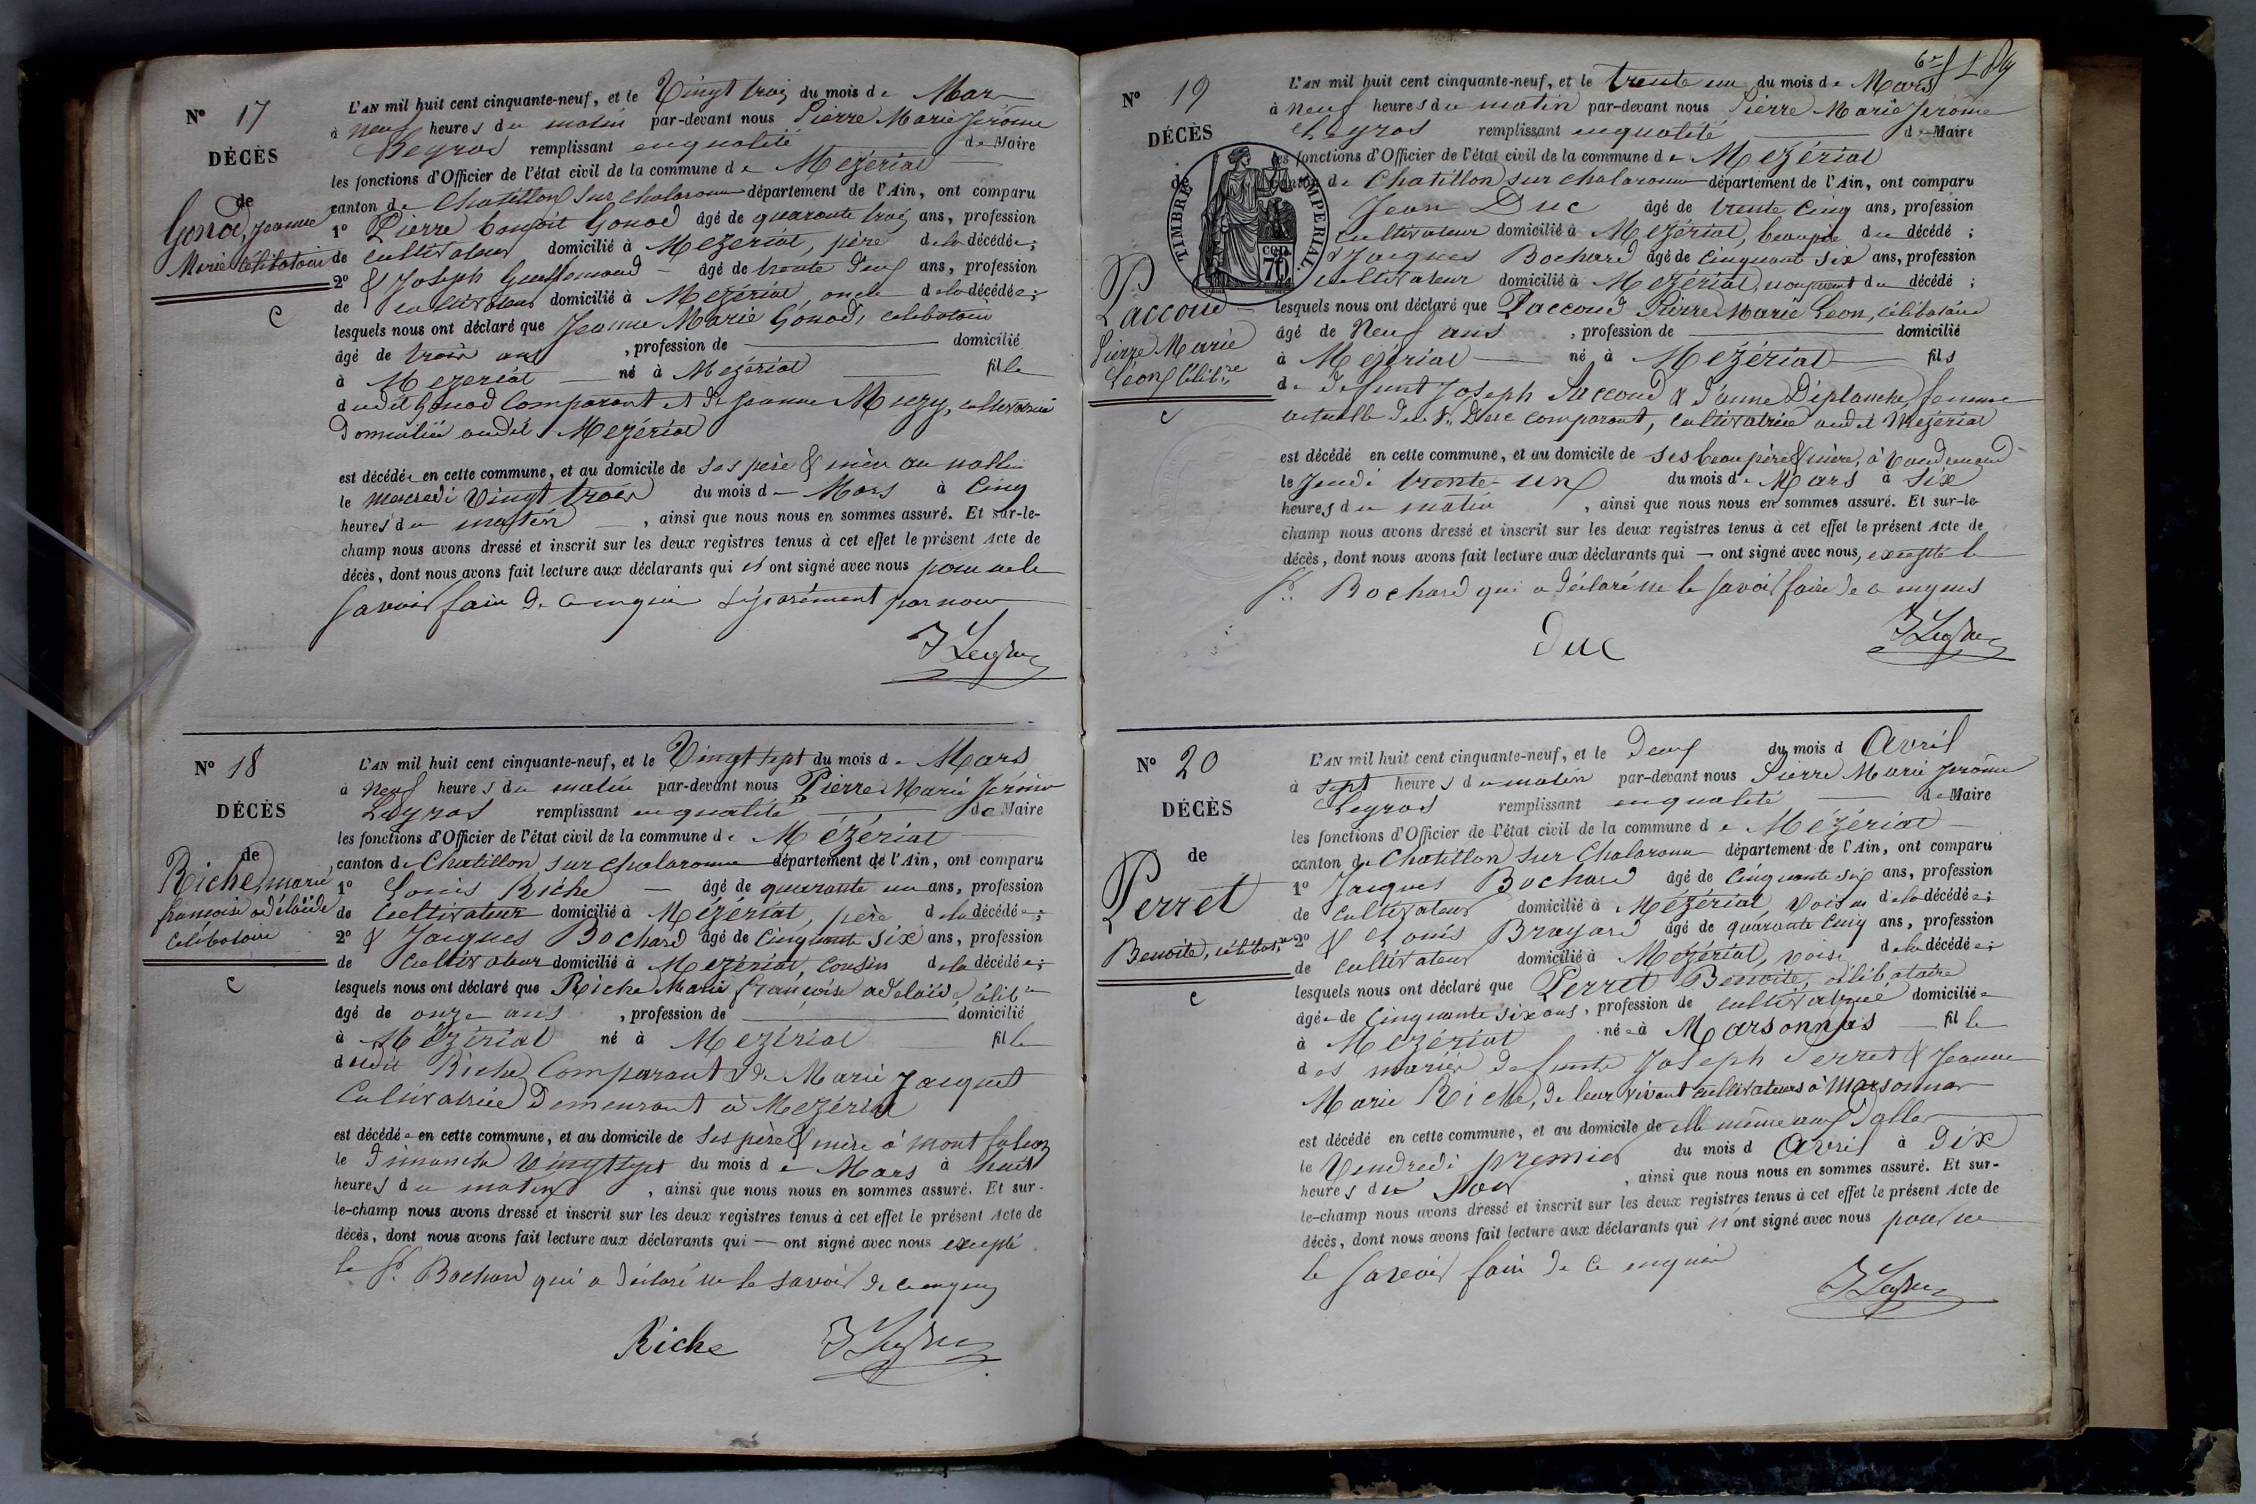 N° 17
DÉCÈS
de
Gonod, Jeanne
Marie célibataire
C
L'AN mil huit cent cinquante-neuf, et le Vingt trois du mois de Mars
à neuf heures du matin par-devant nous Pierre Marie Jérôme
Leyros remplissant en qualité de Maire
les fonctions d'Officier de l'état civil de la commune de Mézériat
canton de Chatillon sur chalaronne département de l'Ain, ont comparu
1° Pierce benoit Gonod âgé de quarante trois ans, profession
de cultivateur domicilié à Mézériat, père de la décédée;
2° & Joseph Guillemaud âgé de trente deux ans, profession
de cultivateur domicilié à Mézériat, oncle de la décédée;
lesquels nous ont déclaré que Jeanne Marie Gonod, célibataire
âgé de trois ans , profession de domicilié
à Mezeriat né à Mezériat fille
dudit Gonod Comparant et de Jeanne Muzy, cultivatrice
domiciliée audit Mezériat
est décédée en cette commune, et au domicile de ses père & mère au
le mercredi Vingt trois du mois de Mars à Cinq
heures du matin , ainsi que nous nous en sommes assuré. Et sur-le-
champ nous avons dressé et inscrit sur les deux registres tenus à cet effet le présent Acte de
décès, dont nous avons fait lecture aux déclarants qui n'ont signé avec nous pour ne le
savoir faire de ce enquis séparément par nous
N° 18
DÉCÈS
de
Riche, marie
françoise adélaïde
célibataire
C
L'AN mil huit cent cinquante-neuf, et le Vingt sept du mois de Mars
à neuf heures du matin par-devant nous Pierre Marie Jérôme
Leyros remplissant en qualité de Maire
les fonctions d'Officier de l'état civil de la commune de Mézériat
canton de Chatillon sur chalaronne département de l'Ain, ont comparu
1° Louis Riche âgé de quarante un ans, profession
de Cultivateur domicilié à Mézériat, père de la décédée;
2° & Jacques Bochard âgé de Cinquante six ans, profession
de Cultivateur domicilié à Mezériat, cousin de la décédée;
lesquels nous ont déclaré que Riche Marie françoise adélaïde, célib.re
âgé de onze ans , profession de domicilié
à Mézériat né à Mezériat fille
dudit Riche Comparant & de Marie Jacquet
Cultivatrice demeurant à Mezériat
est décédée en cette commune, et au domicile de ses père & mère à
le dimanche Vingt sept du mois de Mars à huit
heures du matin , ainsi que nous nous en sommes assuré. Et sur-
le-champ nous avons dressé et inscrit sur les deux registres tenus à cet effet le présent Acte de
décès, dont nous avons fait lecture aux déclarants qui — ont signé avec nous excepté
le Sr. Bochard qui a déclaré ne le savoir de ce enquis
Riche
N° 19
DÉCÈS
de
TIMBRE IMPÉRIAL.
70
Paccoud
Pierre Marie
Léon célib.re
C
L'AN mil huit cent cinquante-neuf, et le trente un du mois de Mars
à neuf heures du matin par-devant nous Pierre Marie Jérôme
Leyros remplissant en qualité de Maire
les fonctions d'Officier de l'état civil de la commune de Mezériat
canton de Chatillon sur chalaronne département de l'Ain, ont comparu
Jean Duc âgé de trente Cinq ans, profession
cultivateur domicilié à Mézériat, beaupère du décédé ;
& Jacques Bochard âgé de Cinquante six ans, profession
cultivateur domicilié à Mezériat, du décédé ;
lesquels nous ont déclaré que Paccoud Pierre Marie Léon, célibataire
âgé de Neuf ans , profession de domicilié
à Mezériat né à Mézériat fils
de defunt Joseph Paccoud & d'anne Déplanche femme
actuelle du Sr. Duc comparant, cultivatrice audit Mezériat
est décédé en cette commune, et au domicile de ses beaupère & mère, à
le Jeudi trente-un du mois de Mars à Six
heures du matin , ainsi que nous nous en sommes assuré. Et sur-le-
champ nous avons dressé et inscrit sur les deux registres tenus à cet effet le présent Acte de
décès, dont nous avons fait lecture aux déclarants qui — ont signé avec nous, excepté le
Sr. Bochard qui a déclaré ne le savoir faire de ce enquis
Duc
N° 20
DÉCÈS
de
Perret
Benoite, célibat.re
C
L'AN mil huit cent cinquante-neuf, et le deux du mois d Avril
à sept heures du matin par-devant nous Pierre Marie Jérôme
Leyros remplissant en qualité de Maire
les fonctions d'Officier de l'état civil de la commune de Mézériat
canton de Chatillon sur Chalaronne département de l'Ain, ont comparu
1° Jacques Bochard âgé de Cinquante six ans, profession
de Cultivateur domicilié à Mézériat, voisin de la décédée;
2° & Louis Brayard âgé de quarante Cinq ans, profession
de cultivateur domicilié à Mezériat, voisin de la décédée;
lesquels nous ont déclaré que Perret Benoite, célibataire
âgée de Cinquante six ans, profession de cultivatrice domiciliée
à Mezériat née à Marsonnas fille
des mariés defunts Joseph Perret & Jeanne
Marie Riche, de leur vivant cultivateurs à Marsonnas
est décédé en cette commune, et au domicile de elle même aux
le Vendredi premier du mois d Avril à Dix
heures du Soir , ainsi que nous nous en sommes assuré. Et sur-
le-champ nous avons dressé et inscrit sur les deux registres tenus à cet effet le présent Acte de
décès, dont nous avons fait lecture aux déclarants qui n'ont signé avec nous pour ne
le savoir faire de ce enquis